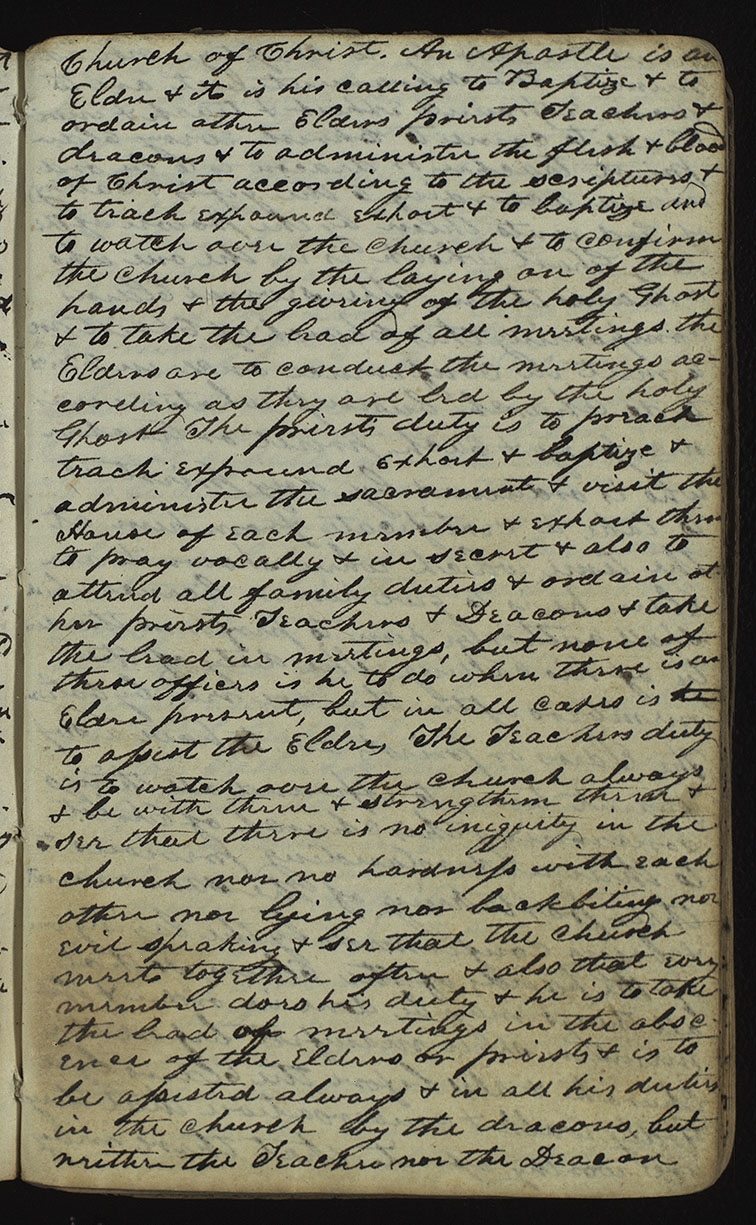 Church of Christ. An Apostle is an
Elder & it is his calling to Baptize & to
ordain other Elders priests Teachers &
deacons & to administer the flesh & blood
of Christ according to the scriptures &
to teach expound exhort & to baptize and
to watch over the church & to confirm
the church by the laying on of the
hands & the giveing of the holy Ghost
& to take the lead of all meetings. the
Elders are to conduct the meetings ac-
cording as they are led by the holy
Ghost The priests duty is to preach
teach expound exhort & baptize &
administer the sacrament & visit the
House of each member & exhort them
to pray vocally & in secret & also to
attend all family duties & ordain ot
her priests Teachers & Deacons & take
the lead in meetings, but none of
these offices is he to do when there is an
Elder present, but in all cases is he
to assist the Elder, The Teachers duty
is to watch over the church always
& be with them & strengthem them &
see that there is no iniquity in the
church nor no hardness with each
other nor lying nor backbiting nor
evil speaking & see that the church
meets together often & also that every
member does his duty & he is to take
the lead of meetings in the absc-
ence of the Elders or priests & is to
be assisted always & in all his duties
in the church by the deacons, but
neither the Teacher nor the Deacon